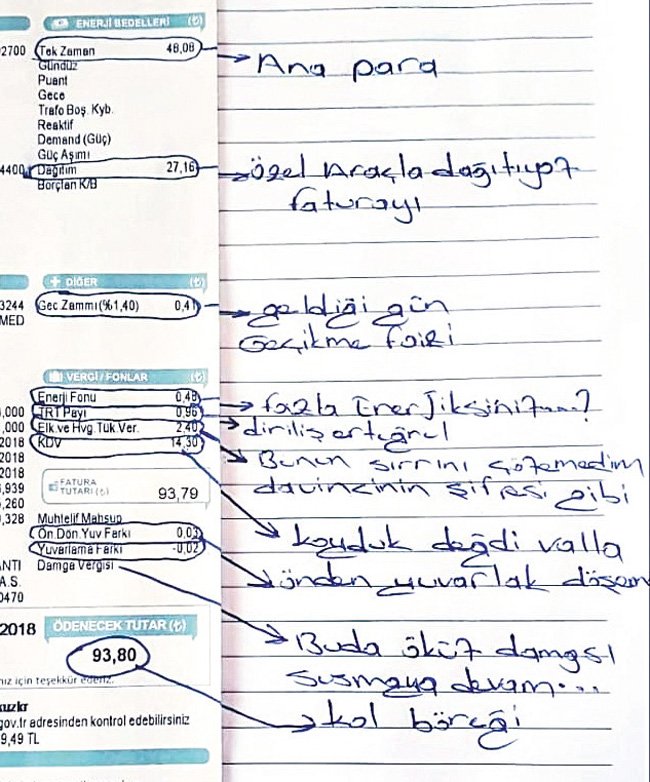 ENERJİ BEDELLERİ (₺)
2700 Tek Zaman 48,08
Ana para
Gündüz
Puant
Gece
Trafo Boş. Kyb.
Reaktif
Demand (Güç)
Güç Aşımı
4400 Dağıtım 27,16
özel Araçla dağıtıyoz
faturayı
Borçlan K/B
DİĞER (₺)
3244 Gec Zammı(%1,40) 0,41
MED
geldiği gün
Geçikme faizi
VERGİ / FONLAR (₺)
Enerji Fonu 0,48
,000 TRT Payı 0,96
fazla Enerjiksiniz
,000 Elk.ve Hvg.Tük Ver. 2,40
diriliş ertuğrul
2018 KDV 14,30
2018
2018
Bunun sırrını çözemedim
davincinin şifresi gibi
,939 FATURA
TUTARI (₺) 93,79
,260
,328 Muhtelif Mahsup
koyduk değdi valla
Ön.Dön.Yuv Farkı 0,03
Yuvarlama Farkı -0,02
önden yuvarlak döşem
ANTI Damga Vergisi
A.S.
0470
2018 ÖDENECEK TUTAR (₺)
93,80
Buda öküz damgası
susmaya devam...
nız için teşekkür ederiz.
kol böreği
gov.tr adresinden kontrol edebilirsiniz
9,49 TL